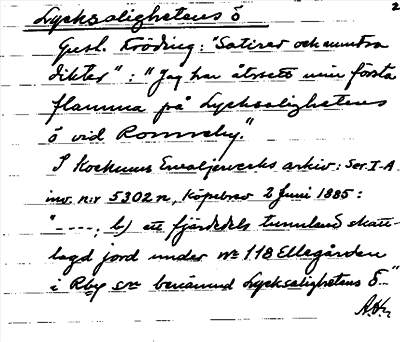 2
Lycksalighetens ö
Gust. Fröding: "Satirer och
dikter": "Jag har återsett min första
flamma på Lycksalighetens
ö vid Ronneby."
I Kockums Emaljerverks arkiv: Ser. I-A
inv. n:r 5302 n, Köpebrev 2 Juni 1885:
"----, b) ett fjärdedels tunnland skatt-
lagd jord under No 118 Ellegården
i Rby sn benämnd Lycksalighetens ö--"